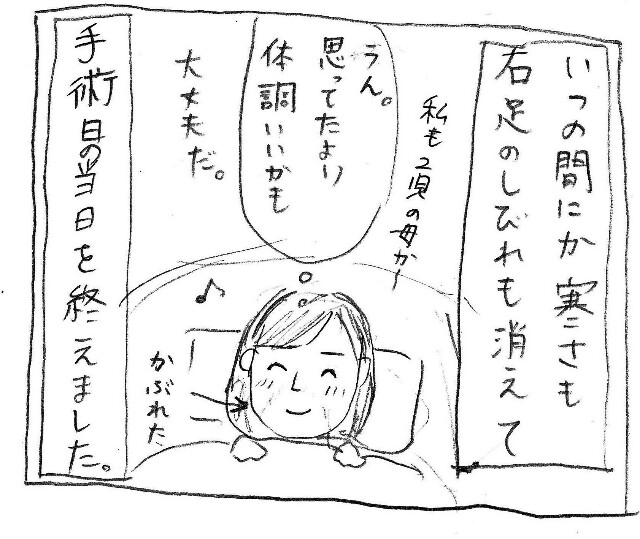 いつの間にか寒さも
右足のしびれも消えて
私も2児の母かー
うん。
思ってたより
体調いいかも
大丈夫だ。
かぶれた
手術日の当日を終えました。